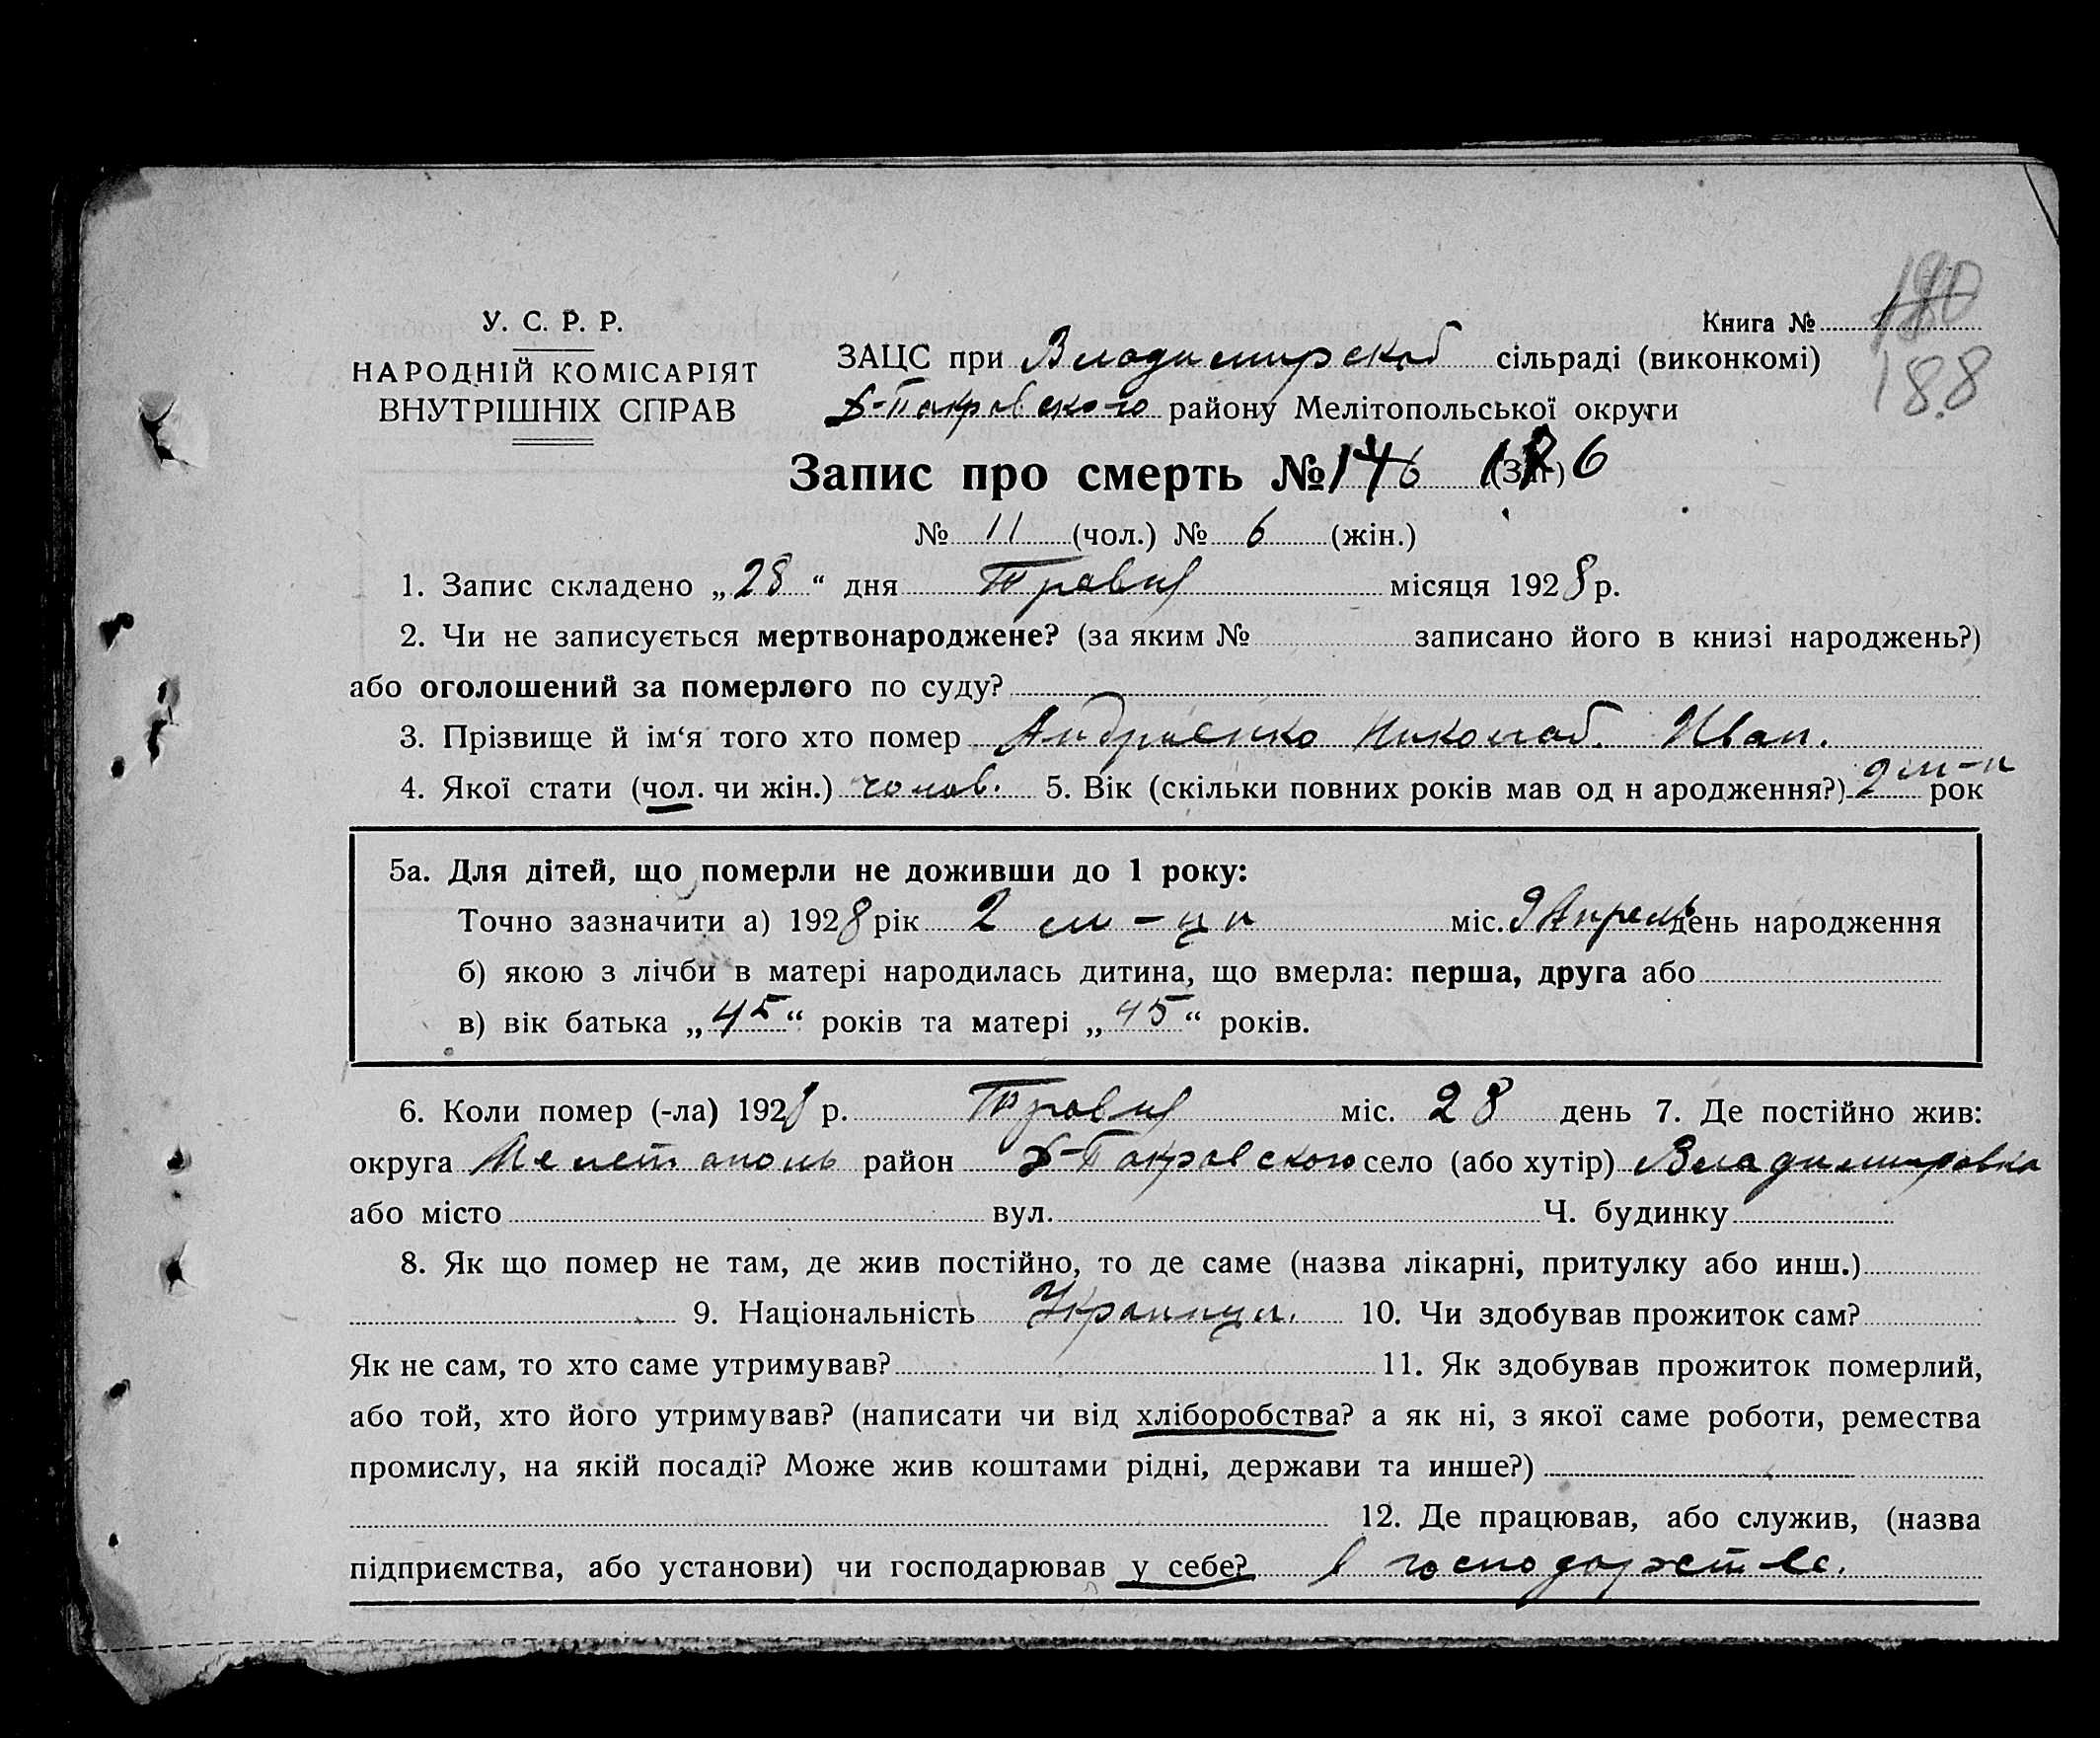 180
188
У. С. Р. Р.
НАРОДНІЙ КОМІСАРІЯТ
ВНУТРІШНІХ СПРАВ
Книга № 1
ЗАЦС при Владимирской сільраді (виконкомі)
Покровского району Мелітопольської округи
Запис про смерть № (Заг)
№ 11 (чол.) № 6 (жін.)
1. Запис складено „28“ дня Травня місяця 1928 р.
2. Чи не записується мертвонароджене? (за яким № записано його в книзі народжень?)
або оголошений за померлого по суду?
3. Прізвище й ім‘я того хто помер Андрієнко Николай. Иван.
4. Якої стати (чол. чи жін.) чолов. 5. Вік (скільки повних років мав од н ародження?) 2 м-ц рок
5а. Для дітей, що померли не доживши до 1 року:
Точно зазначити а) 1928 рік 2 м-ци міс. 9 Апрель день народження
б) якою з лічби в матері народилась дитина, що вмерла: перша, друга або
в) вік батька „45“ років та матері „45“ років.
6. Коли помер (-ла) 1928 р. Травня міс. 28 день 7. Де постійно жив:
округа Мелетополь район Б-Покровского село (або хутір) Владимировка
або місто вул. Ч. будинку
8. Як що помер не там, де жив постійно, то де саме (назва лікарні, притулку або инш.)
9. Національність Украинц. 10. Чи здобував прожиток сам?
Як не сам, то хто саме утримував? 11. Як здобував прожиток померлий,
або той, хто його утримував? (написати чи від хліборобства? а як ні, з якої саме роботи, ремества
промислу, на якій посаді? Може жив коштами рідні, держави та инше?)
12. Де працював, або служив, (назва
підприємства, або установи) чи господарював у себе? в господарстве.